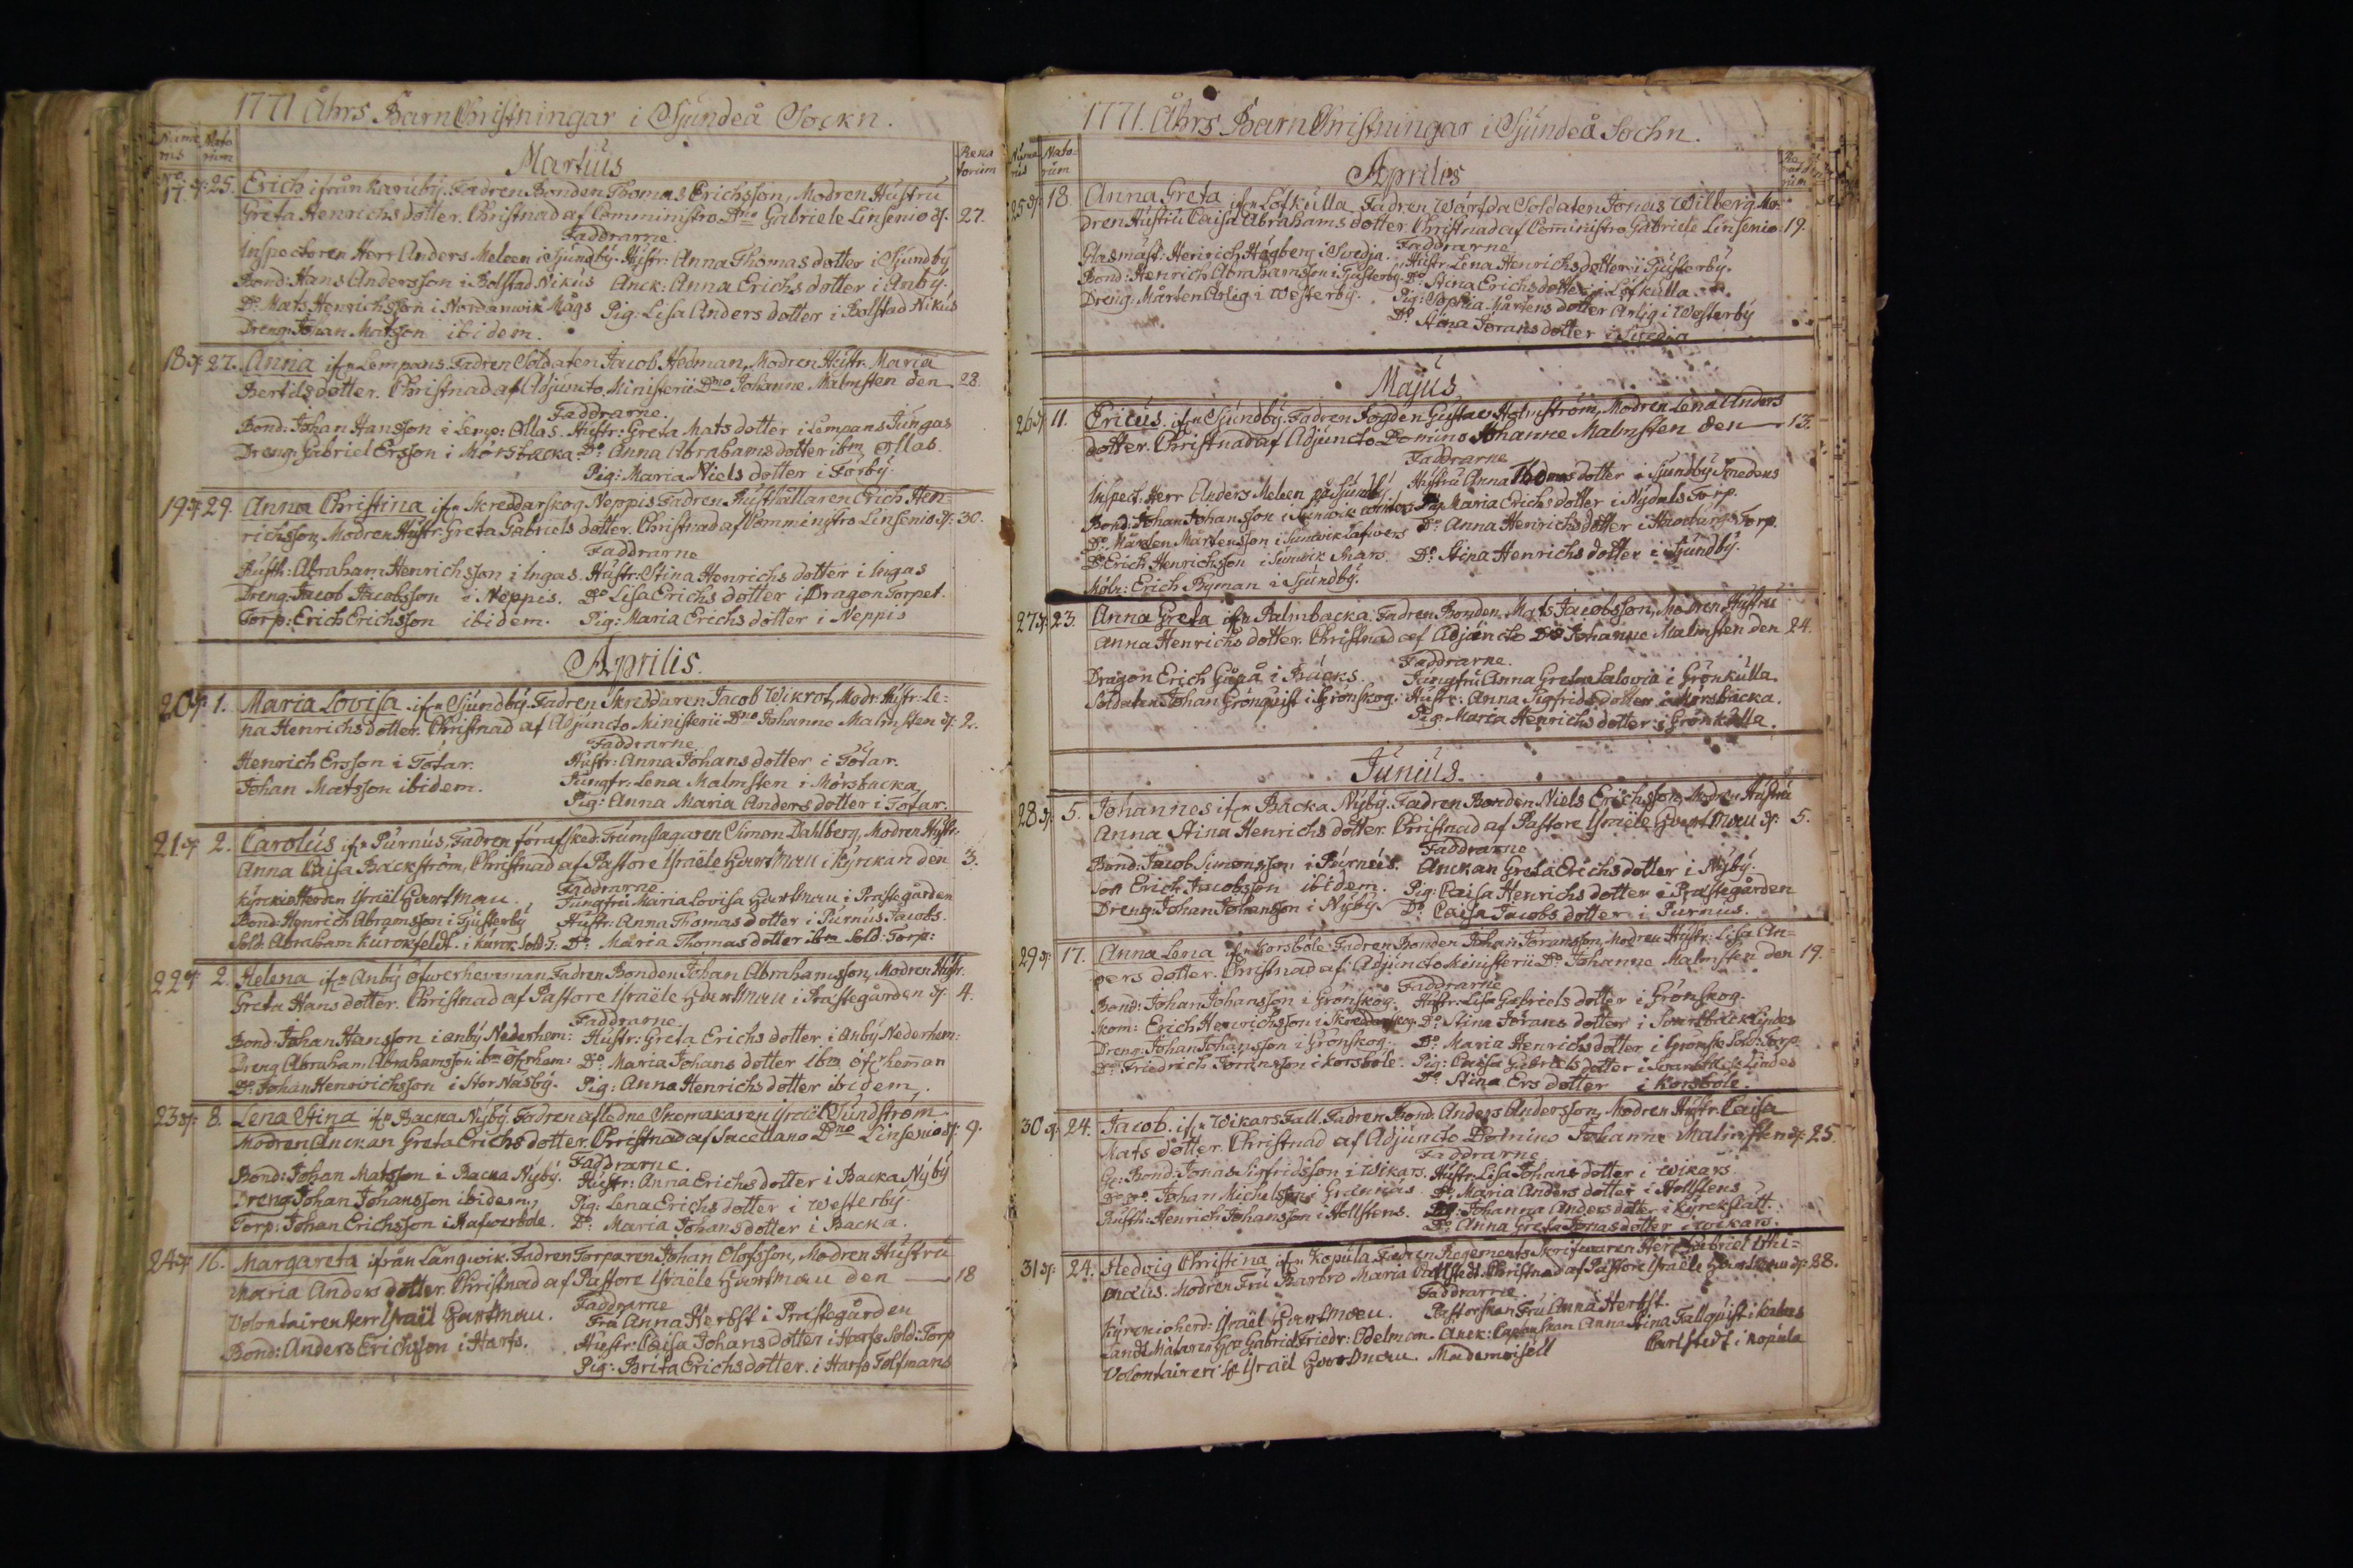 1771 Åhrs Barn Christningar i Sjundeå Sockn.
Nume rus Nato rum Rena torum
Martius
No. 17. 25. Erich ifrån Karuby. Fadren Bonden Thomas Erichsson, Modren Hustru
Greta Henrichs dotter. Christnad af Comministro Dno Gabriele Linsenio d. 27.
Faddrarne.
Inspectoren Herr Anders Meleen i Sjundby. Hustr: Anna Thomas dotter i Sjundby
Bond: Hans Andersson i Bolstad Nikus Anck: Anna Erichs dotter i Anby.
Do Mats Henrichsson i Nordanwik Mågs Pig: Lisa Anders dotter i Bolstad Nikus
Dreng: Johan Matsson ibidem.
18 27. Anna ifn Lempans. Fadren Soldaten Jacob Hedman, Modren Hustr. Maria
Bertils dotter. Christnad af Adjuncto Ministerii Dno Johanne Malmsten den 28.
Faddrarne.
Bond: Johan Hansson i Lemp: Ollas. Hustr: Greta Mats dotter i Lempans Jungas
Dreng. Gabriel Ersson i Mörsbacka. Do Anna Abrahams dotter ibm Ollas.
Pig: Maria Niels dotter i Förby.
19 29. Anna Christina ifn Skreddarskog Neppis. Fadren Rusthållaren Erich Hen=
richsson, Modren Hustr: Greta Gabriels dotter. Christnad af Comministro Linsenio d. 30.
Faddrarne
Rusth: Abraham Henrichsson i Ingas. Hustr: Stina Henrichs dotter i Ingas
Dreng: Jacob Jacobsson i Neppis. Do Lisa Erichs dotter i Dragon Torpet.
Torp: Erich Erichsson ibidem. Pig: Maria Erichs dotter i Neppis
Aprilis.
20 1. Maria Lovisa ifn Sjundby. Fadren Skreddaren Jacob Wikrot, Modr: Hustr: Le=
na Henrichs dotter. Christnad af Adjuncto Ministerii Dno Johanne Malmsten d: 2.
Faddrarne
Henrich Ersson i Tötar. Hustr: Anna Johans dotter i Tötar.
Johan Matsson ibidem. Jungfr: Lena Malmsten i Mörsbacka
Pig: Anna Maria Anders dotter i Tötar.
21 2. Carolus ifn Purnus. Fadren förafsked: Trumslagaren Simon Dahlberg, Modren Hustr:
Anna Caisa Backström, Christnad af Pastore Israële Hartman i Kyrckan den 3.
Faddrarne.
Kyrckioherden Israël Hartman. Jungfru Maria Lovisa Hartman i Prästegården
Bond: Henrich Abramsson i Tjusterby Hustr: Anna Thomas dotter i Purnus Jacobs.
Sold: Abraham Kurckfeldt i Kurck Sold: T: Do: Maria Thomas dotter ibm Sold: Torp:
22 2. Helena ifn Anby Öfwerhemman Fadren Bonden Johan Abrahamsson, Modren Hustr.
Greta Hans dotter. Christnad af Pastore Israële Hartman i Prästegården d: 4.
Faddrarne.
Bond: Johan Hansson i Anby Nederhem: Hustr: Greta Erichs dotter i Anby Nederhem:
Dreng Abraham Abrahamsson ibm Öfrhem: Do: Maria Johans dotter ibm Öfrhem̄an
Do: Johan Henrichsson i Stor Näsby. Pig: Anna Henrichs dotter ibidem.
23 8. Lena Stina ifn Backa Nyby. Fadren afledne Skomakaren Israël Sundström
Modren Anckan Greta Erichs dotter. Christnad af Sacellano Dno Linsenio d: 9.
Faddrarne.
Bond: Johan Matsson i Backa Nyby. Hustr: Anna Erichs dotter i Backa Nyby
Dreng Johan Johansson ibidem. Pig: Lena Erichs dotter i Westerby.
Torp: Johan Erichsson i Rafwerböle. Do: Maria Johans dotter i Backa.
24 16. Margareta ifrån Långwik. Fadren Torparen Johan Olofsson, Modren Hustru
Maria Anders dotter. Christnad af Pastore Israële Hartman den 18
Faddrarne
Volontairen Herr Israël Hartman. Fru Anna Herbst i Prästegården
Bond: Anders Erichsson i Harfs. Hustr: Caisa Johans dotter i Harfs Sold: Torp
Pig: Brita Erichs dotter. i Harfs Tolfmans
1771. Åhrs Barn Christningar i Sjundeå Sochn.
Nume rus Nato= rum
Aprilis
25 18. Anna Greta ifn Löfkulla Fadren Wärfda Soldaten Jonas Wilberg. Mo=
dren Hustru Caisa Abrahams dotter. Christnad af Com̄inistro Gabriele Linsenio 19.
Faddrarne
Glasmäst: Henrich Högberg i Svedja. Hustr: Lena Henrichs dotter i Tjusterby.
Bond: Henrich Abrahamsson i Tjusterby. Do Stina Erichs dotter i Löfkulla
Dreng. Mårten Arlig i Westerby. Pig: Sophia Mårtens dotter Arlig i Westerby
Do Stina Jörans dotter i Svedja
Majus
26 11. Ericus. ifn Sjundby. Fadren Fogden Gustav Holmström, Modren Lena Anders
dotter. Christnad af Adjuncto Domino Johanne Malmsten den 13.
Faddrarne
Inspect: Herr Anders Meleen på Sjundby. Hustru Anna Thomas dotter i Sjundby Smedens
Bond: Johan Johansson i Sunwik Winters. Pig. Maria Erichs dotter i Nydals Torp.
Do: Mårten Mårtensson i Sunwik Do Anna Henrichs dotter i Torp.
Do: Erich Henrichsson i Sunwik Do Stina Henrichs dotter i Sjundby.
Erich Byman i Sjundby.
27 23. Anna Greta ifn Palmbacka. Fadren Bonden Mats Jacobsson, Modren Hustru
Anna Henrichs dotter. Christnad af Adjuncto Do Johanne Malmsten den 24.
Faddrarne.
Dragon Erich Gågå i Bäcks. Jungfru Anna Greta Salovia i Grönkulla.
Soldaten Johan Grönquist i Grönskog. Hustr: Anna Sigfrids dotter i Mörsbacka.
Pig: Maria Henrichs dotter i Grönkulla.
Junius.
28 5. Johannes ifn Backa Nyby. Fadren Bonden Niels Erichsson, Modren Hustru
Anna Stina Henrichs dotter. Christnad af Pastore Israële Hartman d: 5.
Faddrarne
Bond: Jacob Simonsson i Purnus. Anckan Greta Erichs dotter i Nyby.
Son Erich Jacobsson ibidem. Pig: Caisa Henrichs dotter i Præstegården
Dreng. Johan Johansson i Nyby. Do Caisa Jacobs dotter i Purnus.
29 17. Anna Lena ifn Korsböle. Fadren Bonden Johan Jöransson, Modren Hustr: Lisa An=
ders dotter. Christnad af Adjuncto Ministerii Do Johanne Malmsten den 19.
Faddrarne
Bond: Johan Johansson i Grönskog. Hustr: Lisa Gabriels dotter i Grönskog.
Skom: Erich Henrichsson i Skreddarskog. Do Stina Jörans dotter i Svartbäck Lindes
Dreng: Johan Johansson i Grönskog. Do Maria Henrichs dotter i Grönsk: Sold: Torp
Do Friedrich Jöransson i Korsböle. Pig: Caisa Gabriels dotter i Svartbäck Lindes
Do Stina Ers dotter i Korsböle.
30 24. Jacob. ifn Wikars Fall. Fadren Bond: Anders Andersson, Modren Hustr: Caisa
Mats dotter. Christnad af Adjuncto Domino Johanne Malmsten d: 25.
Faddrarne
Bond: Jonas Sigfridsson i Wikars. Hustr. Lisa Johans dotter i Wikars.
Do: Johan Michelsson i Grännäs. Do Maria Anders dotter i Hollstens
Rusth: Henrich Johansson i Hollstens. Pig: Johanna Anders dotter i Kyrckslätt.
Do: Anna Greta Jonas dotter i Wikars.
31 24. Hedvig Christina ifn Kopula Fadren Regements Skrifwaren Herr Gabriel
Modren Fru Barbro Maria Carlstedt. Christnad af Pastore Israële Hartman d: 28.
Faddrarne.
Kyrckioherd: Israël Hartman. Pastorskan Fru Anna Herbst.
Landt Mätaren Herr Gabriel Friedr: Edelman. Anck: Caplanskan Anna Stina Fallquist i
Volontairen Israël Hartman. Mademoisell Carlstedt i Kopula